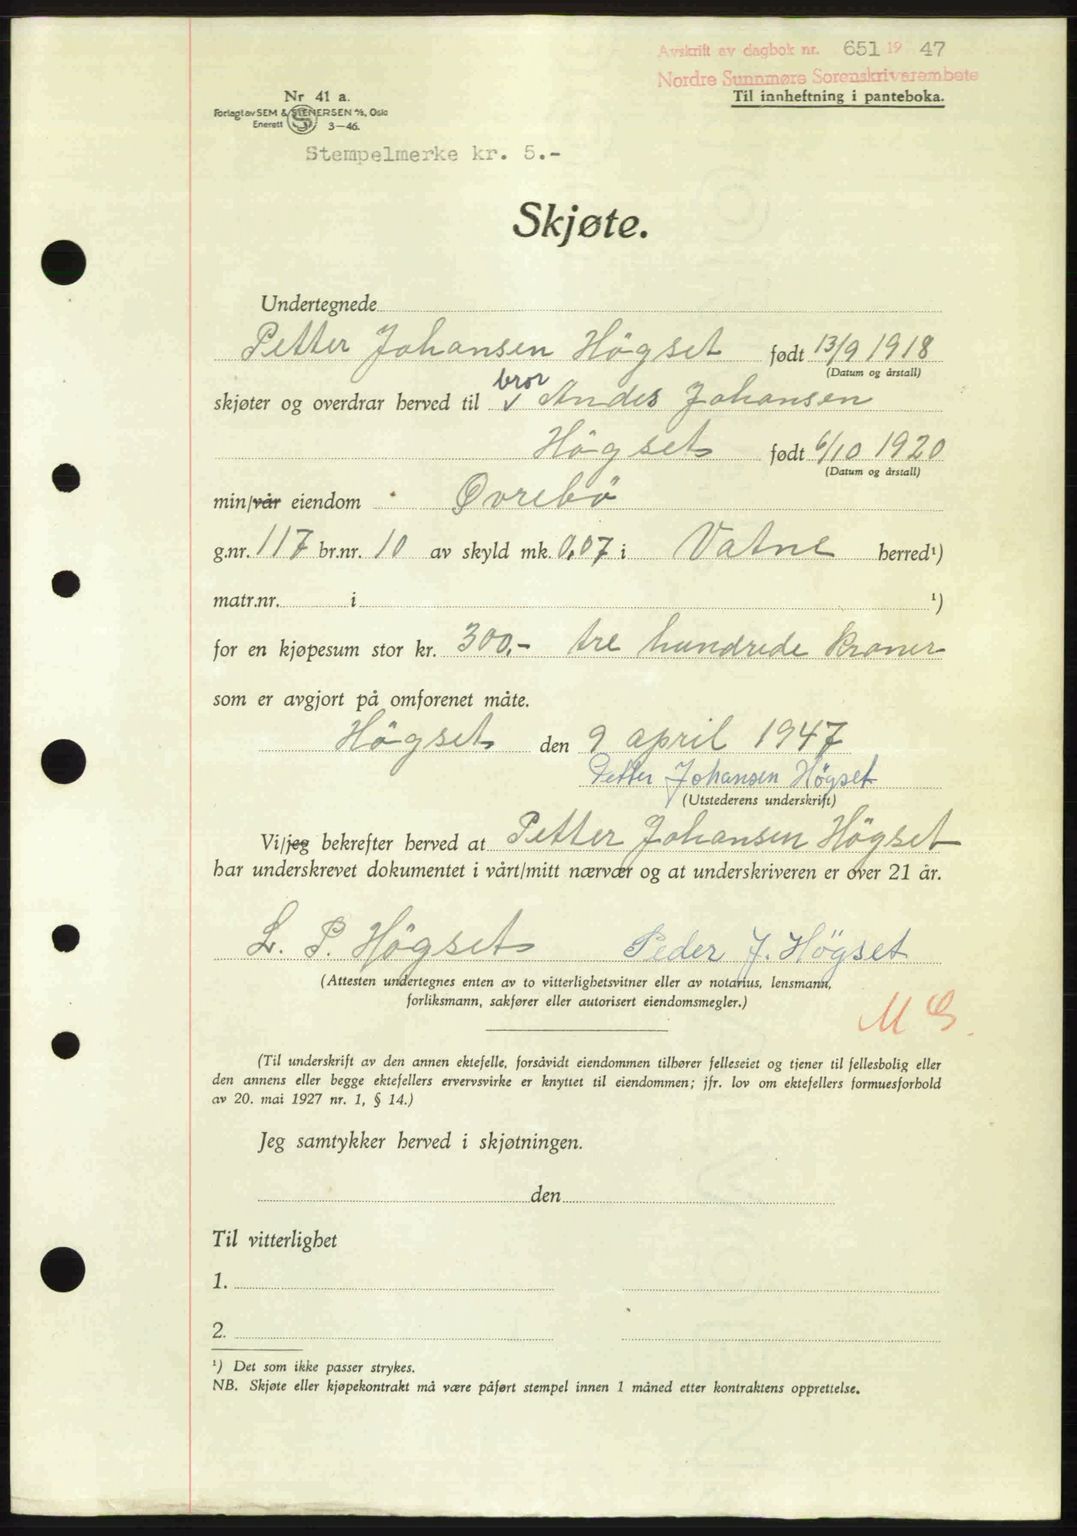 Avskrift av dagbok nr. 651 19 47
Nordre Sunnmøre Sorenskriverembete
Til innheftning i panteboka.
Nr 41 a.
Forlagt av SEM & STENERSEN A/S, Oslo
Enerett S 3-46.
Stempelmerke kr. 5.-
Skjøte.
Undertegnede
Petter Johansen Högset født 13/9 1918
(Datum og årstall)
bror
skjøter og overdrar herved til √ Andes Johansen
Högset født 6/10 1920
(Datum og årstall)
min/vår eiendom Øvrebö
g.nr. 117 br.nr. 10 av skyld mk. 0,07 i Vatne herred¹)
matr.nr. i ¹)
for en kjøpesum stor kr. 300,- tre hundrede kroner
som er avgjort på omforenet måte.
Högset den 9 april 1947
Petter Johansen Høgset
(Utstederens underskrift)
Vi/jeg bekrefter herved at Petter Johansen Högset
har underskrevet dokumentet i vårt/mitt nærvær og at underskriveren er over 21 år.
L. P. Högset Peder J. Högset
(Attesten undertegnes enten av to vitterlighetsvitner eller av notarius, lensmann,
forliksmann, sakfører eller autorisert eiendomsmegler.)
M G.
(Til underskrift av den annen ektefelle, forsåvidt eiendommen tilhører felleseiet og tjener til fellesbolig eller
den annens eller begge ektefellers ervervsvirke er knyttet til eiendommen; jfr. lov om ektefellers formuesforhold
av 20. mai 1927 nr. 1, § 14.)
Jeg samtykker herved i skjøtningen.
den
Til vitterlighet
1.
2.
¹) Det som ikke passer strykes.
NB. Skjøte eller kjøpekontrakt må være påført stempel innen 1 måned etter kontraktens opprettelse.